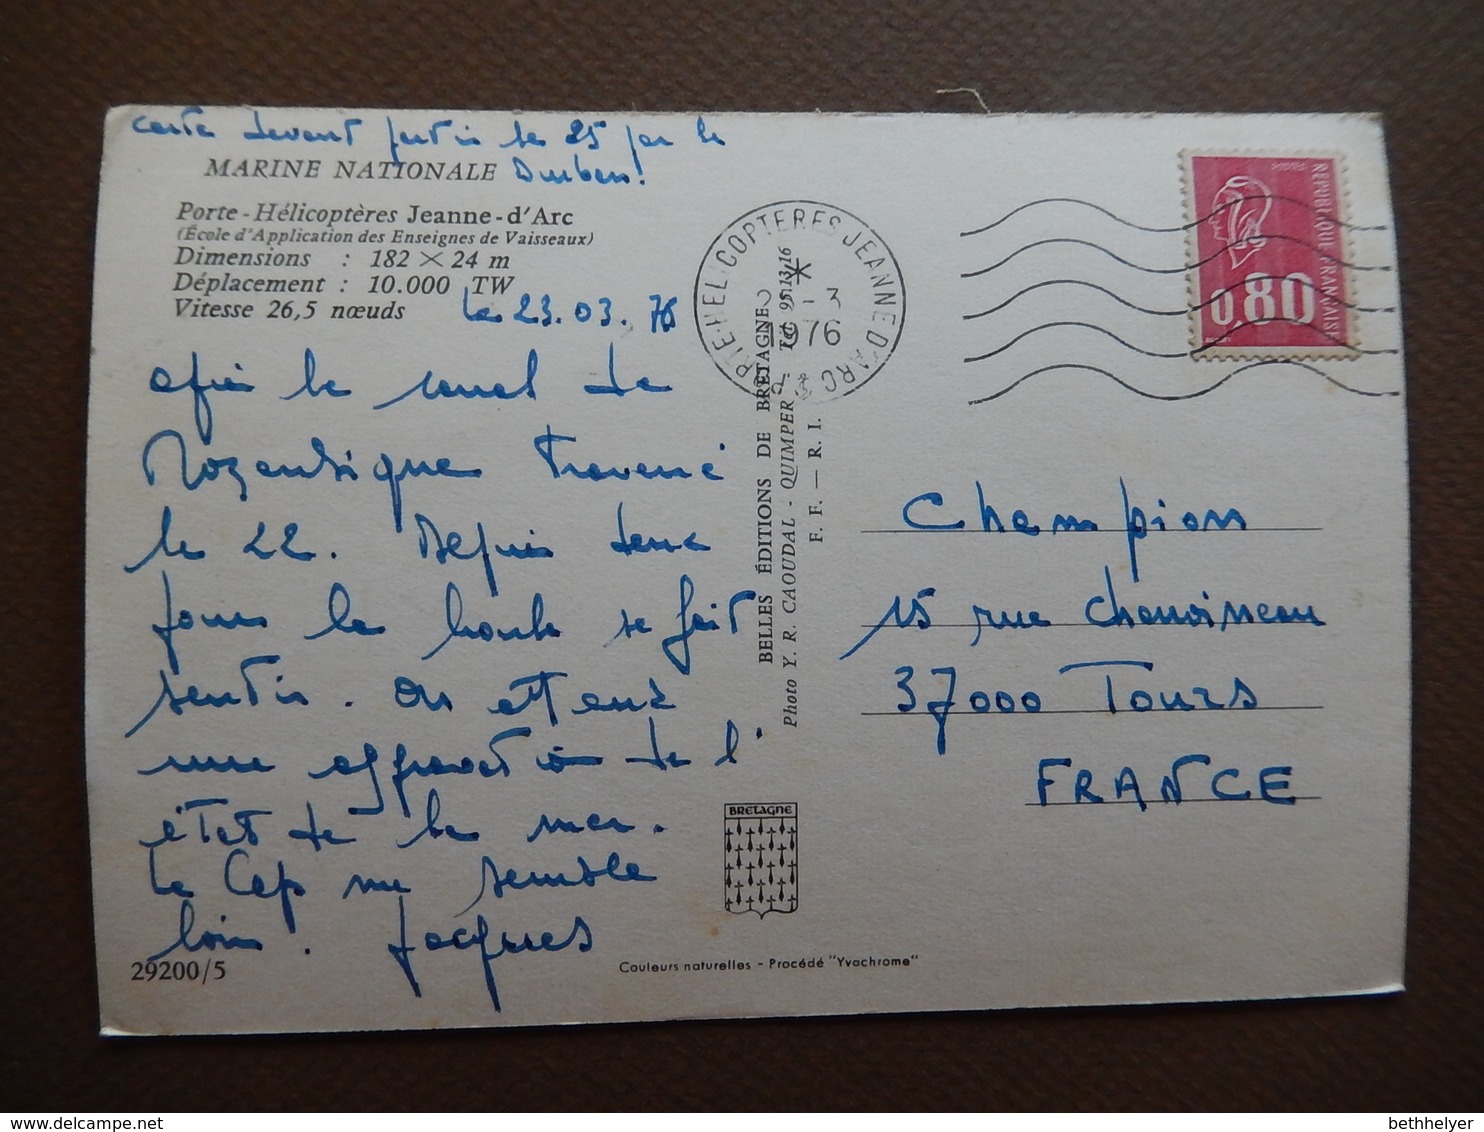 carte devant partir le 25 par le
Durban!
MARINE NATIONALE
Porte-Hélicoptères Jeanne-d'Arc
(École d'Application des Enseignes de Vaisseaux)
Dimensions : 182 × 24 m
Déplacement : 10.000 TW
Vitesse 26,5 nœuds
Le 23.03.76
après le canal de
Mozambique traversé
le 22. Depuis deux
jours la houle se fait
sentir. On attend
une aggravation de l'
état de la mer.
Le Cap me semble
loin. Jacques
29200/5
BELLES ÉDITIONS DE BRETAGNE
Photo Y. R. CAOUDAL - QUIMPER - Tél. 95-13-16
F. F. — R. I.
PORTE-HELICOPTERES JEANNE D'ARC
-3
1976
REPUBLIQUE FRANCAISE
0,80
Champion
15 rue Chanoineau
37000 Tours
FRANCE
BRETAGNE
Couleurs naturelles - Procédé "Yvachrome"
bethhelyer